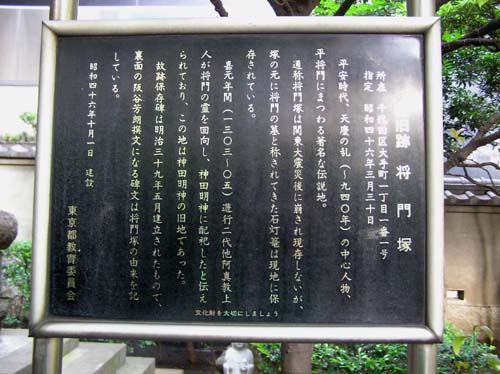 旧跡 将門塚
所在 千代田区大手町一丁目一番一号
指定 昭和四十六年三月三十日
平安時代、天慶の乱(〜九四〇年)の中心人物、
平将門にまつわる著名な伝説地。
通称将門塚は関東大震災後に崩され現存しないが、
塚の元に将門の墓と称されてきた石灯篭は現地に保
存されている。
嘉元年間(一三〇三〜〇五)遊行二代他阿真教上
人が将門の霊を回向し、神田明神に配祀したと伝え
られており、この地は神田明神の旧地であった。
故跡保存碑は明治三十九年五月建立されたもので、
裏面の阪谷芳朗撰文になる碑文は将門塚の由来を記
している。
昭和四十六年十月一日 建設
東京都教育委員会
文化財を大切にしましょう